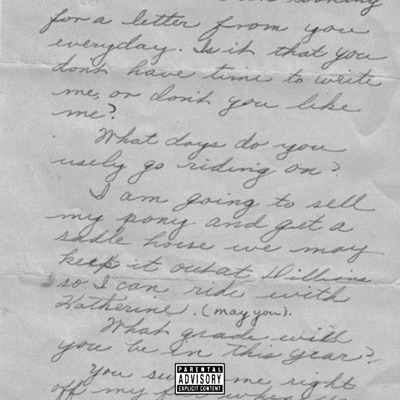 looking
for a letter from you
everyday. Is it that you
don't have time to write
me, or don't you like
me?
What days do you
usely go riding on?
I am going to sell
my pony and get a
sadle horse we may
keep it out at Dillions
so I can ride with
Katherine. (may you).
What grade will
you be in this year?
You su me right
off my
PARENTAL
ADVISORY
EXPLICIT CONTENT